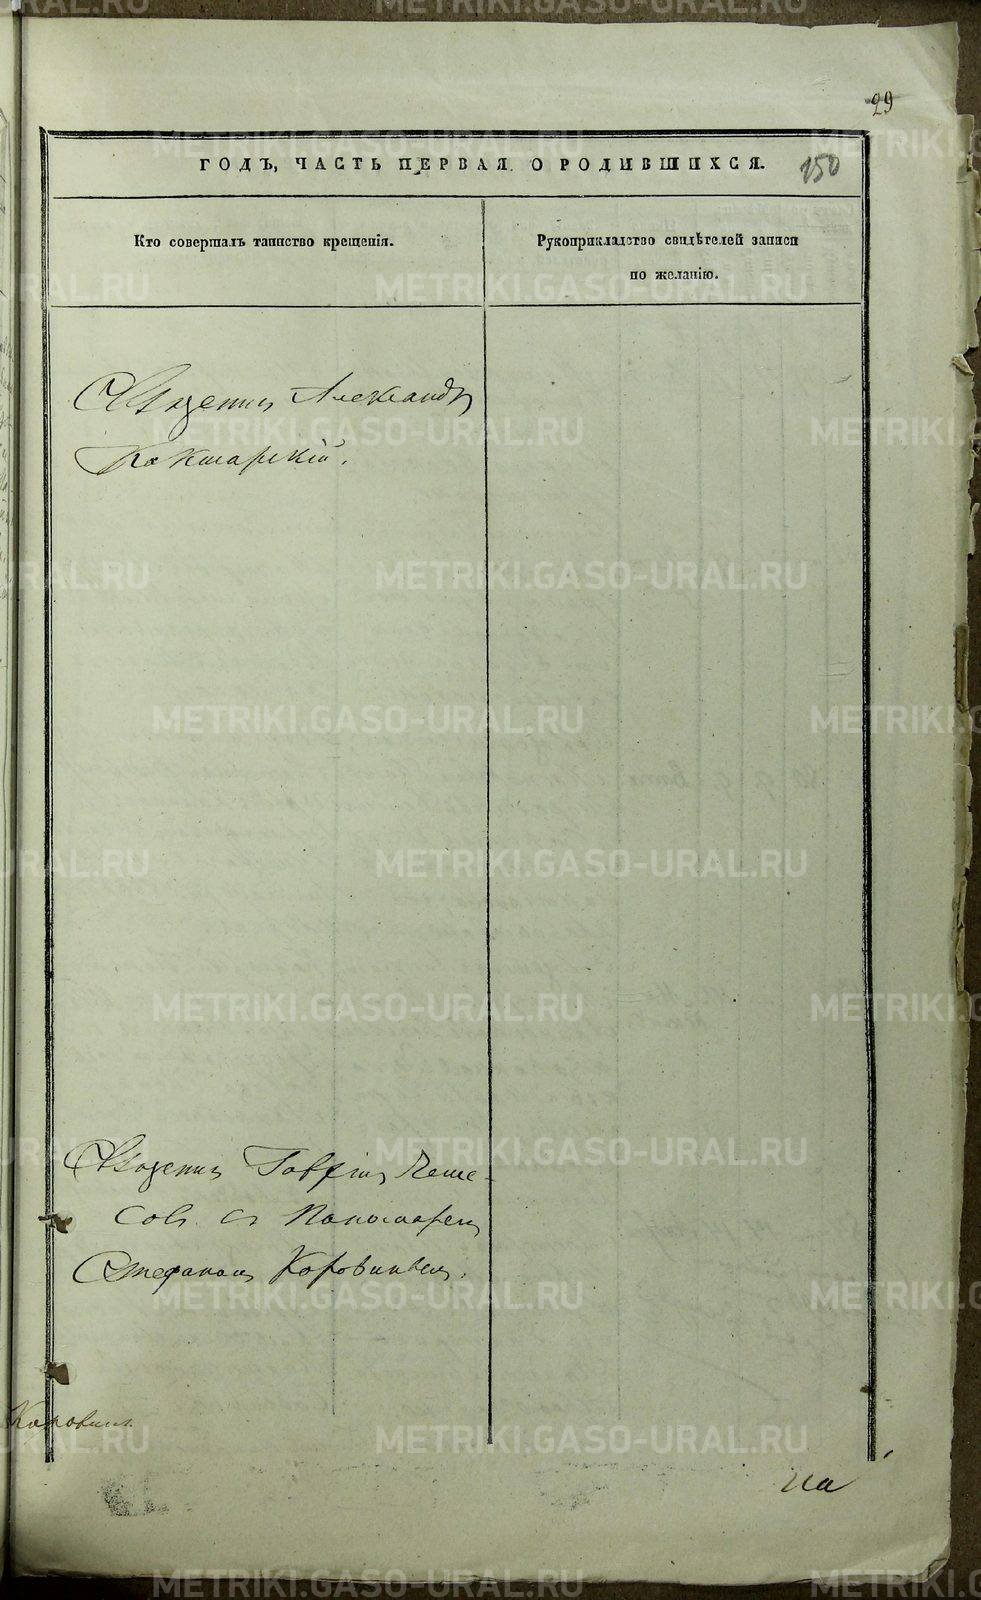 29
ГОДЪ, ЧАСТЬ ПЕРВАЯ. О РОДИВШИХСЯ.
150
Кто совершалъ таинство крещенія.
Рукоприкладство свидѣтелей записи
по желанію.
Священникъ Александръ
Кокшарскій.
Священникъ Гавріилъ
совъ съ Пономаремъ
Стефаномъ Коровинымъ.
Коровинъ.
На
METRIKI.GASO-URAL.RU